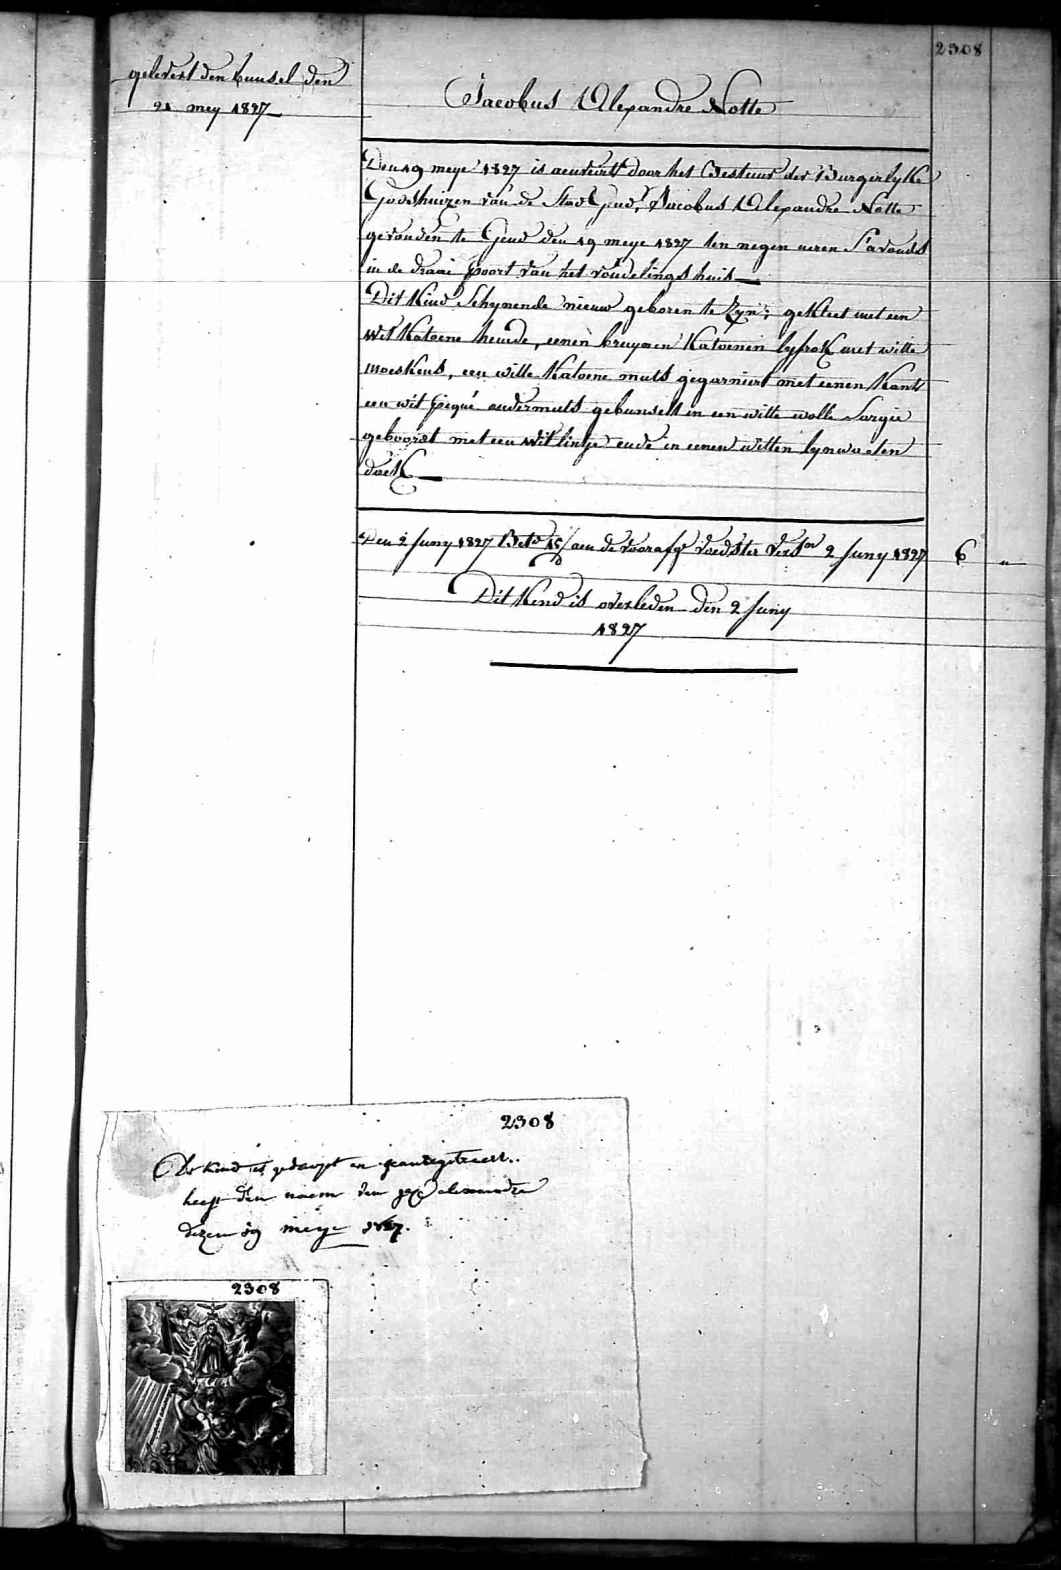 2308
gelevert den bunsel den
21 mey 1827
Jacobus Alexandre Notte
Den 19 meye 1827 is aenveirt door het Bestuur der Burgerlyke
Godshuizen van de Stad Gend, Jacobus Alexandre Notte
gevonden te Gend den 19 meye 1827 ten negen ueren S'avonds
in de draai poort van het vondelings huis
Dit Kind Schynende nieuw geboren te Zyn; gekleet met een
wit Katoene hemde, eenen bruynen Katoenen lyfrok met witte
moeskens, een witte Katoene muts gegarniert met eenen Kant
een wit piqué ondermuts gebunselt in een witte wolle Sargie
geboordt met een wit lintje ende in eenen witten lynwaeten
doek
Den 2 Juny 1827 aen de voorafge voedster 2 Juny 1827 6 "
Dit Kend is overleden den 2 Juny
1827
2308
is gedoopt en
heeft den naem van alexander
dezen 19 meye 1827.
2308